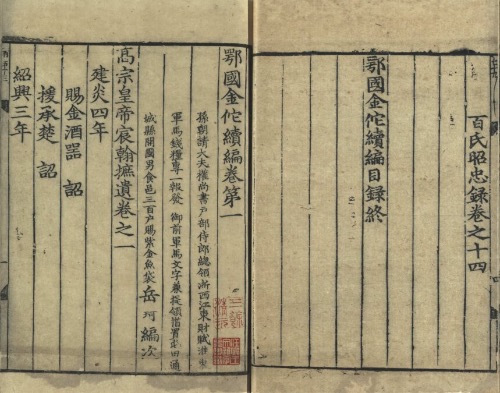 百氏昭忠錄卷之十四
鄂國金佗續編目錄終
鄂國金佗續編卷第一
孫朝請大夫權尚書戶部侍郎總領浙西江東財賦淮東
軍馬錢糧專一報發 御前軍馬文字兼提領措置屯田通
城縣開國男食邑三百戶賜紫金魚袋岳 珂 編次
高宗皇帝宸翰摭遺卷之一
建炎四年
賜金酒器 詔
援承楚 詔
紹興三年